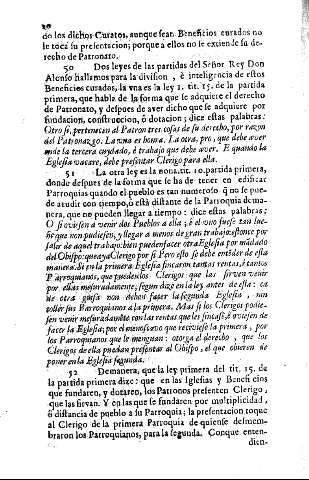 20
do los dichos Curatos, aunque sean Beneficios curados no
le toca su presentacion; porque a ellos no le extiende su de-
recho de Patronato.
50 Dos leyes de las partidas del Señor Rey Don
Alonso hallamos para la division, è inteligencia de estos
Beneficios curados, la vna es la ley 1. tit. 15. de la partida
primera, que habla de la forma que se adquiere el derecho
de Patronato, y despues de aver dicho que se adquiere por
fundacion, construccion, ò dotacion; dice estas palabras:
Otro si, pertenecen al Patron tres cosas de su derecho, por razon
del Patronazgo. La vna es honra. La otra, pro, que debe aver
ende la tercera coydado, è trabajo que debe aver. E quando la
Eglesia vacare, debe presentar Clerigo para ella.
51 La otra ley es la nona, tit. 10. partida primera,
donde despues de la forma que se ha de tener en edificar
Parroquias quando el pueblo es tan numeroso q̃ no se pue-
de acudir con tiempo, ò està distante de la Parroquia de ma-
nera, que no pueden llegar a tiempo: dice estas palabras:
O si oviesen a venir dos Pueblos a ella; è el vno fuese tan lue-
ñe que non pudiesen, y llegar a menos de gran trabajo: è non por
faser de aquel trabajo: bien pueden facer otra Eglesia por mãdado
del Obispo: que aya Clerigo por si Pero esto se debe entender de esta
manera. Se en la primera Eglesia fincaren tantas rentas, è tantos
Parroquianos, que puedan los Clerigos que las sirven venir
por ellas mesuradamente; segun dize en la ley antes de esta: ca
de otra guisa non deben facer la segunda Eglesia, nin
toller sus Parroquianos a la primera. Mas si los Clerigos podie-
sen venir mesuradamente con las rentas que les fincasè, è oviesen de
facer la Eglesia; por el menoscavo que reciviesse la primera, por
los Parroquianos que le menguan: otorga el derecho, que los
Clerigos de ella puedan presentar al Obispo, el que ovieren de
poner en la Eglesia segunda.
52 De manera, que la ley primera del tit. 15. de
la partida primera dize: que en las Iglesias y Beneficios
que fundaren, y dotaren, los Patronos presenten Clerigo,
que las sirvan. Y en las que se fundaren por multiplicidad,
ò distancia de pueblo a su Parroquia; la presentacion toque
al Clerigo de la primera Parroquia de quien se desmem-
braron los Parroquianos, para la segunda. Conque enten-
dien-